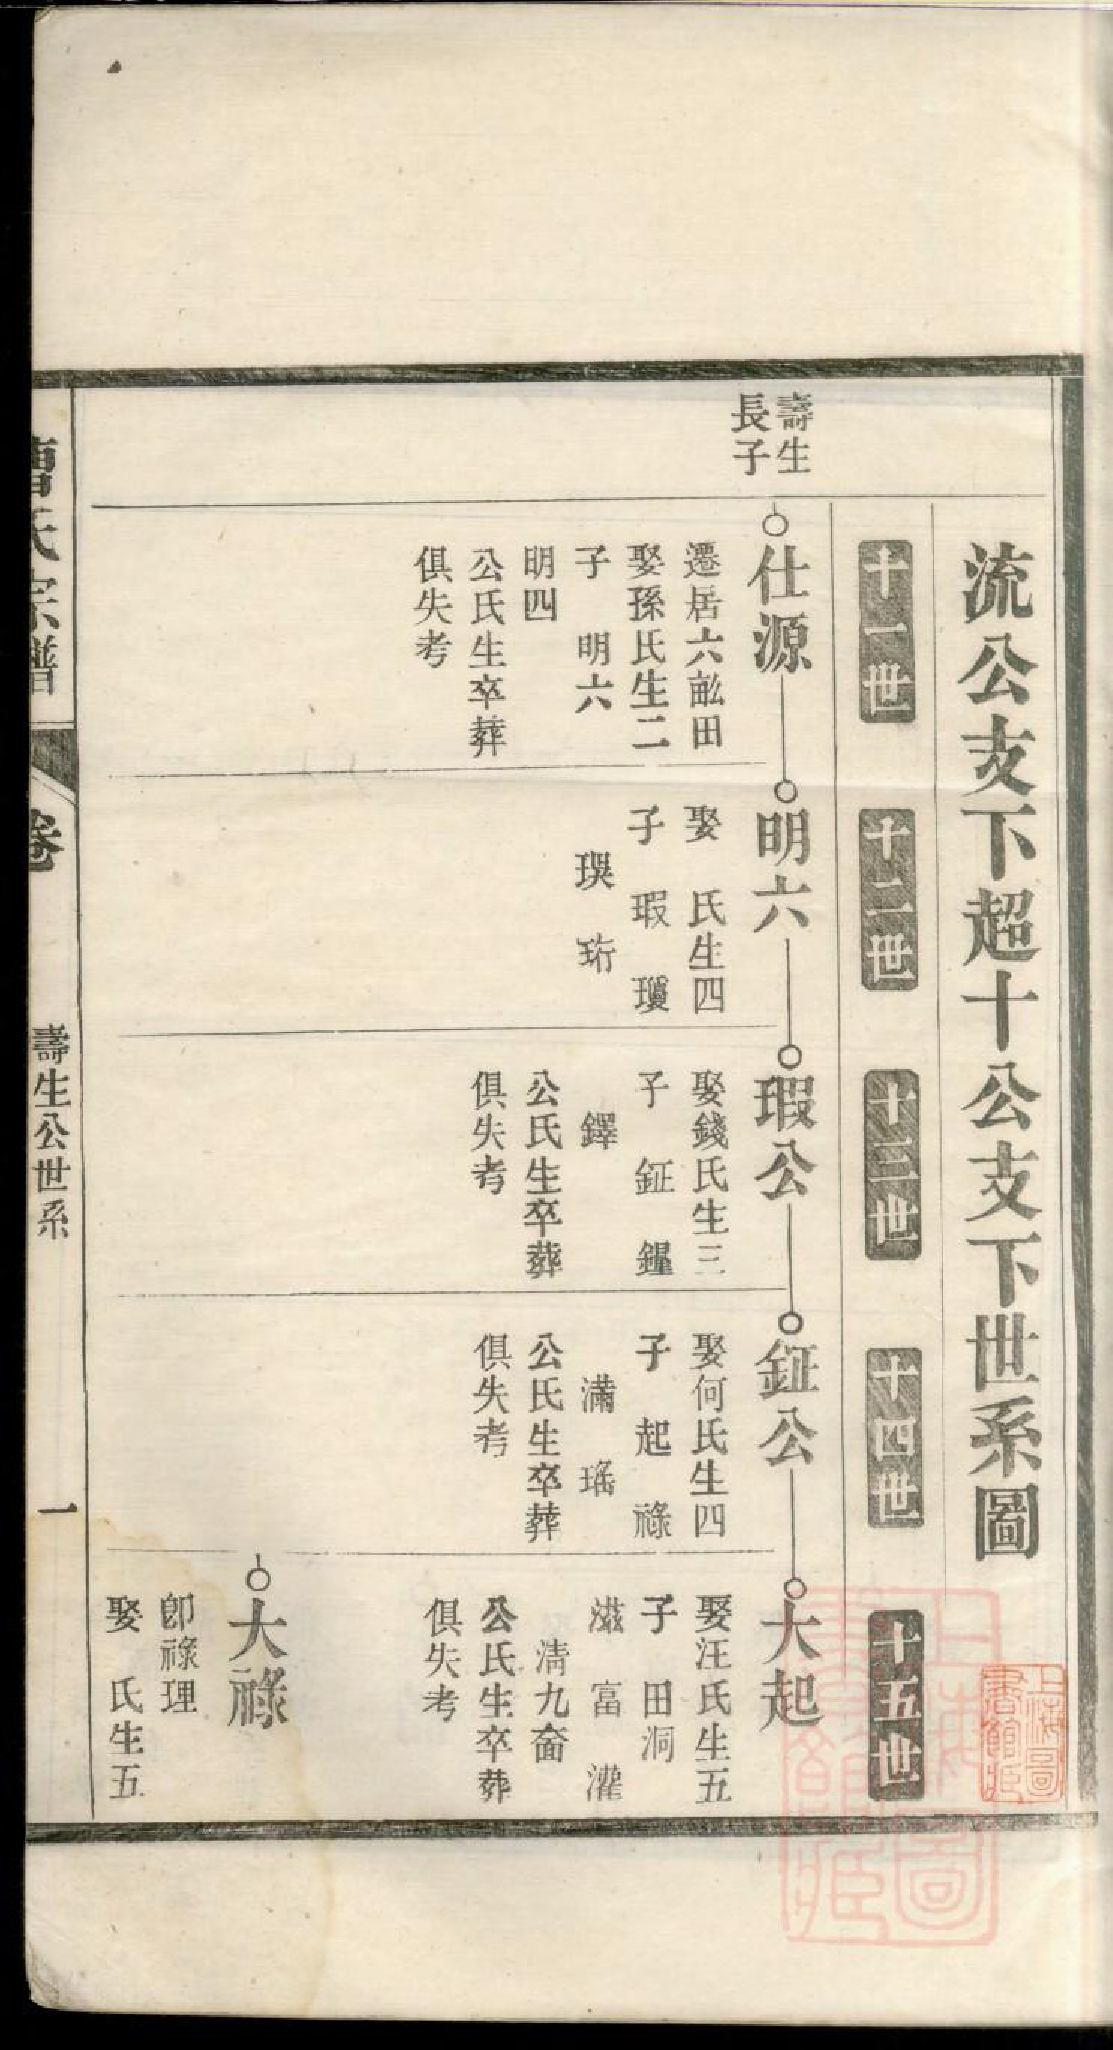 流公支下超十公支下世系圖
十一世
十二世
十三世
十四世
十五世
壽生
長子
仕源
遷居六畝田
娶孫氏生二
子 明六
明四
公氏生卒葬
俱失考
明六
娶 氏生四
子 瑕 瓊
珩
瑕公
娶錢氏生三
子 鉦 鑃
鐸
公氏生卒葬
俱失考
鉦公
娶何氏生四
子 起 祿
滿 瑤
公氏生卒葬
俱失考
大起
娶汪氏生五
子 田洞
滋 富 灌
清九奤
公氏生卒葬
俱失考
大祿
卽祿理
娶 氏生五
曹氏宗譜
卷
壽生公世系
一
上海圖
書館藏